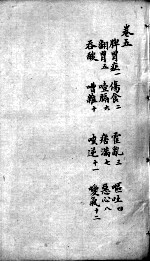 卷五
脾胃症一 傷食二 霍亂三 嘔吐四
翻胃五 噎膈六 痞滿七 惡心八
吞酸 嘈雜十 十一 噯氣十二